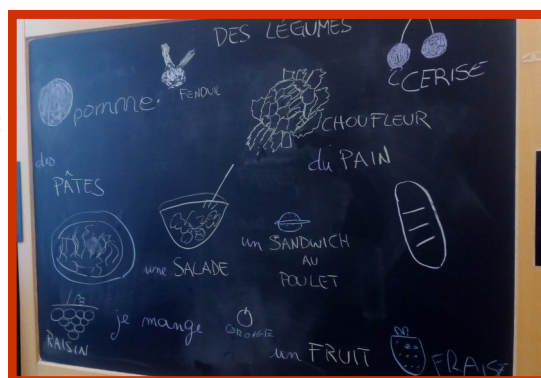 DES LÉGUMES
pomme
FENOUIL
CERISE
CHOUFLEUR
du PAIN
des
PÂTES
une SALADE
un SANDWICH
AU
POULET
RAISIN
je mange
ORANGE
un FRUIT
FRAISE